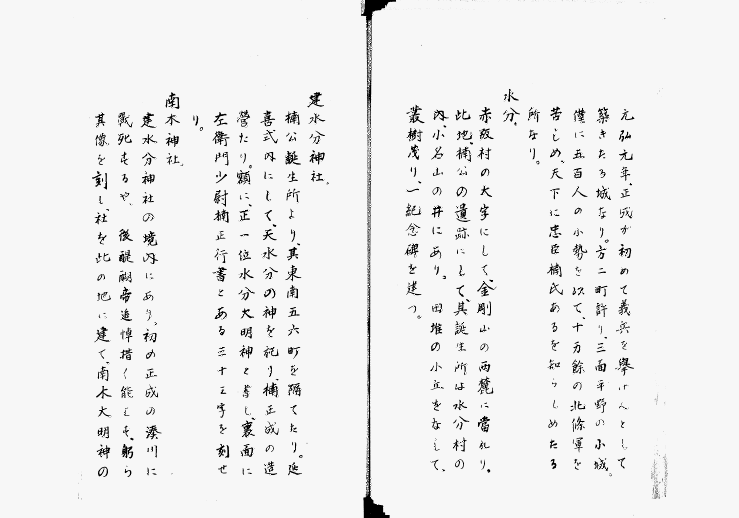 元弘元年、正成が初めて義兵を擧げんとして
築きたる城なり。方二町許り、三面平野の小城。
僅に五百人の小勢を以て、十万餘の北條軍を
苦しめ、天下に忠臣楠氏あるを知らしめたる
所なり。
水分。
赤阪村の大字にして、金剛山の西麓に當れり。
此地、楠公の遺跡にして、其誕生所は水分村の
内、小名山の井にあり。田堆の小丘をなして、
叢樹茂り、一紀念碑を建つ。
建水分神社。
楠公誕生所より、其東南五六町を隔てたり。延
喜式内にして、天水分の神を祀り、楠正成の造
營たり。額に、正一位水分大明神と書し、裏面に
左衛門少尉楠正行書とある三十三字を刻せ
り。
南木神社。
建水分神社の境内にあり、初め正成の湊川に
戰死するや、後醍醐帝追悼措く能はず、躬ら
其像を刻し、社を此の地に建て、南木大明神の